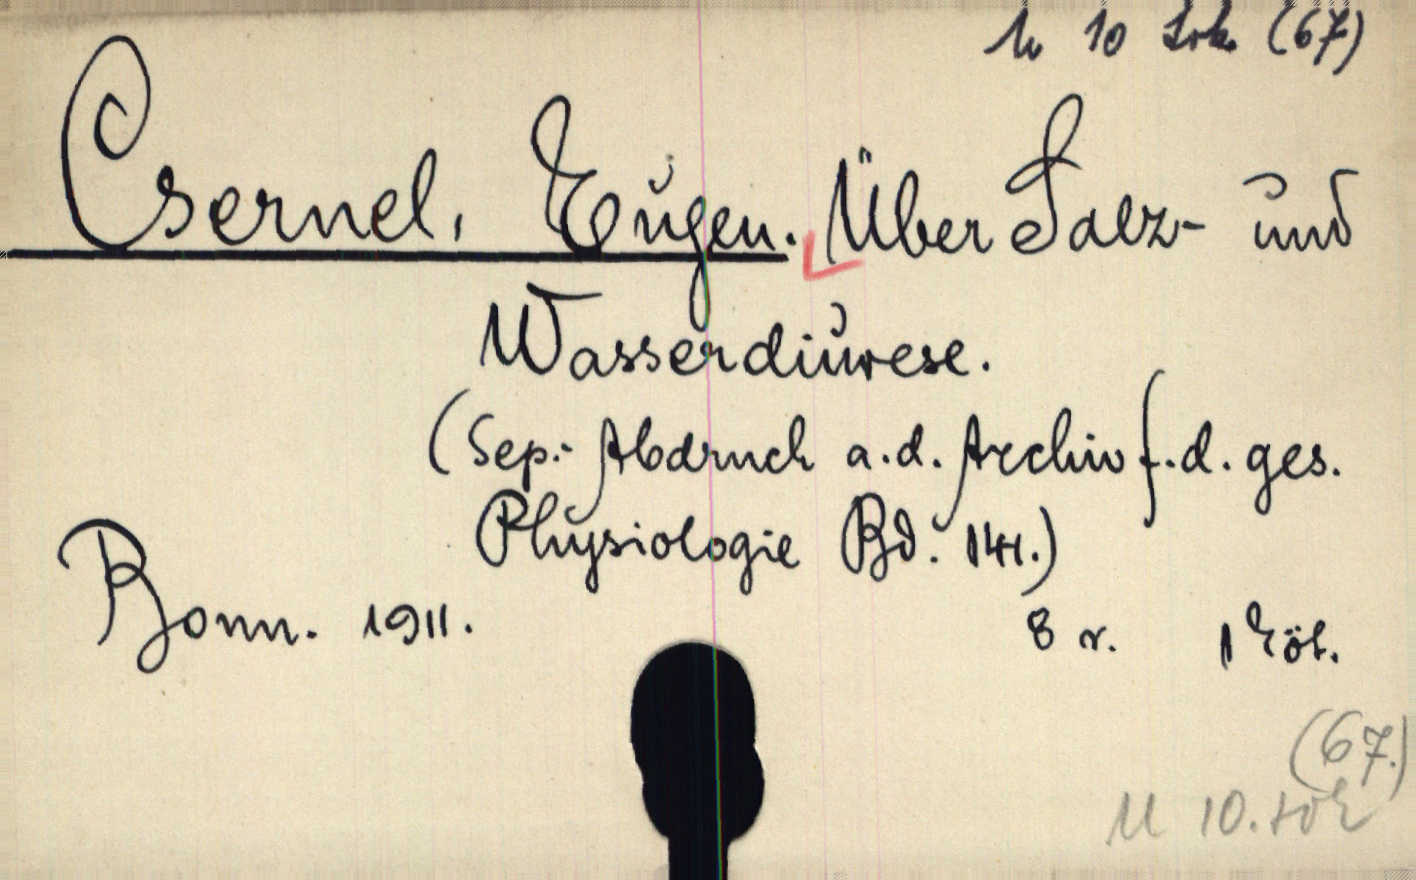 M 10 Sok (67)
Csernel, Eugen. Über Salz- und
Wasserdiurese.
(Sep.- Abdruck a. d. Archiv f. d. ges.
Physiologie Bd. 141.)
Bonn. 1911.
8 r. 1 köt.
(67.)
M 10. sok